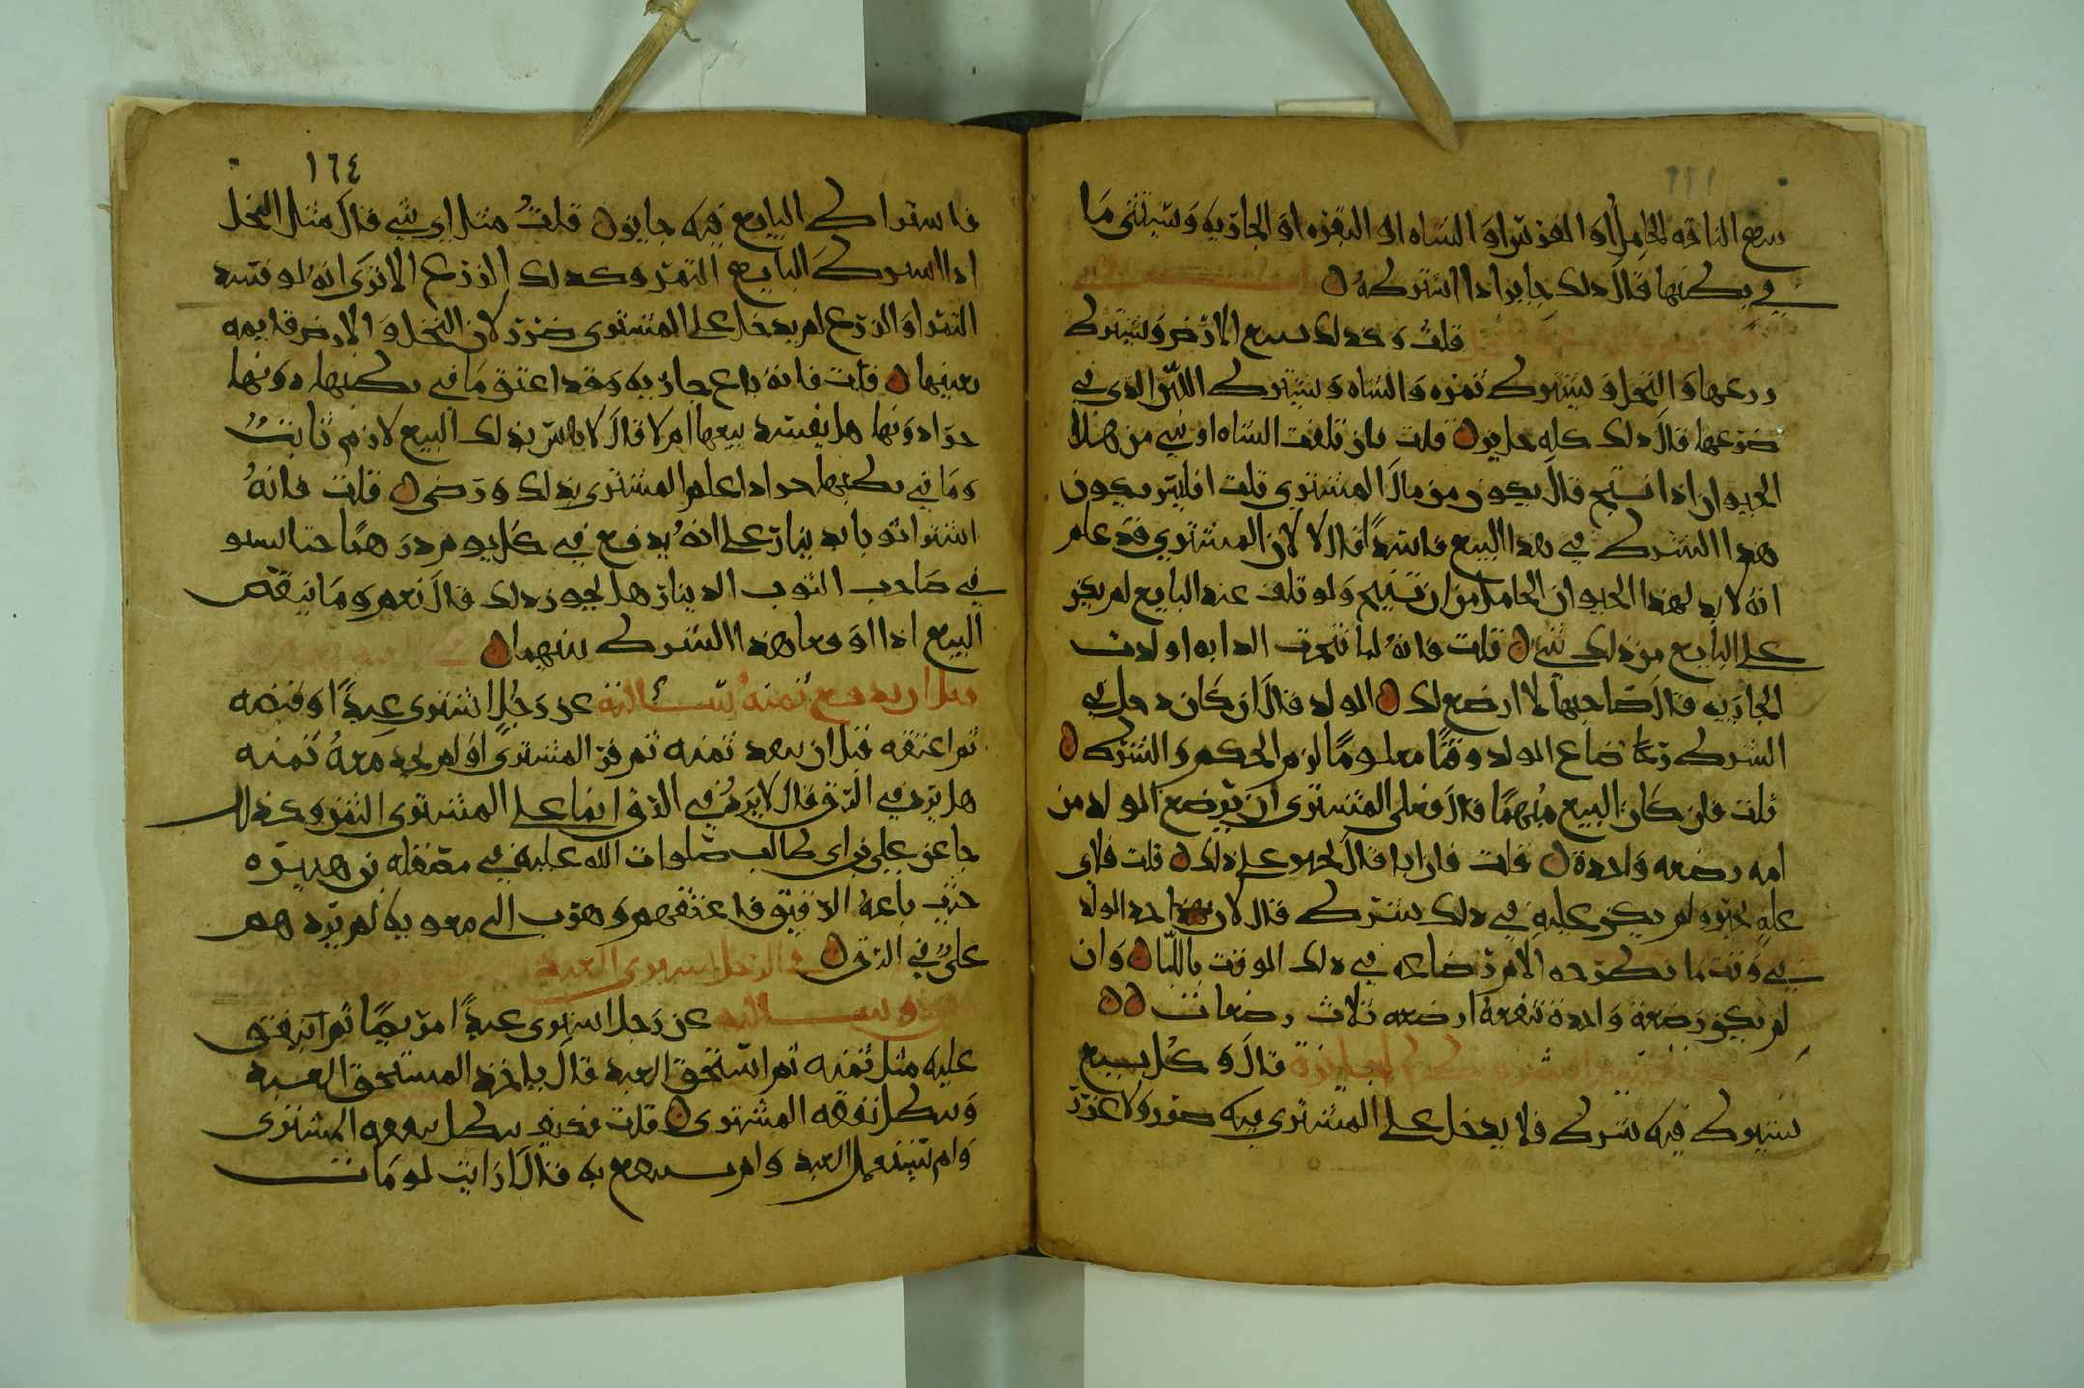 بيع الناقه الحامل او الفرس او الشاه او البقره او الجاريه ويستثنى ما
في بطنها قال ذلك جايز اذا اشتركه
قلت وكذلك يبيع الارض ويشترك
زرعها والنخل ويشترك ثمره والشاه ويشترك اللبن الذي في
ضرعها قال ذلك كله جايز قلت فان تلفت الشاه او شي من هذا
الحيوان اذا نتج قال يكون من مال المشتري قلت افليس يكون
هذا الشرك في هذا البيع فاسدا قال لا لان المشتري قد علم
انه لا بد لهذا الحيوان الحامل من ان ينتج ولو تلف عند البايع لم يكن
على البايع من ذلك شي قلت فانه لما نتجت الدابه او ولدت
الجاريه قال صاحبها لا ارضع لك المولد قال ان كان دخل في
الشرك رضاع المولد وقتا معلوما لزم الحكم والشرك
قلت فان كان البيع مبهما قال فعلى المشتري ان يرضع المولد من
امه رضعه واحدة قلت فان ابا قال يجبر على ذلك قلت فلاي
عله يجبر ولم يكن عليه في ذلك شرك قال لان الولد
في وقت ما تطرحه الام رضاعه في ذلك الوقت باللبا وان
لم يكن رضعة واحدة تنفعه ارضعه ثلاث رضعات
قال وكل بيع
يشترك فيه شرك فلا يدخل على المشتري فيه ضرر ولا غرر
١٦٤
فاشتراك البايع فيه جايز قلت مثل اي شي قال مثل النخل
اذا اشترك البايع الثمر وكذلك الزرع الا ترى انه لو فسد
الثمر او الزرع لم يدخل على المشتري ضرر لان النخل والارض قايمه
بعينها قلت فانه باع جاريه وقد اعتق ما في بطنها دونها
حرا دونها هل يفسد بيعها ام لا قال لا يفسد بذلك البيع لازم ثابت
وما في بطنها حر اذا علم المشتري بذلك ورضي قلت فانه
اشترا ثوبا بدينار على انه يدفع في كل يوم درهما حتا يستو
في صاحب الثوب الدينار هل يجوز ذلك قال نعم وما ينقص
البيع اذا اوقعا هذا الشرك بينهما
قبل ان يدفع ثمنه وسالته عن رجل اشترى عبدا وقبضه
ثم اعتقه قبل ان ينقد ثمنه ثم فر المشتري او لم يجد معه ثمنه
هل يرد في الرق قال لا يرد في الرق انما على المشتري الثمن وكذلك
جا عن علي بن ابي طالب صلوات الله عليه في مصقله بن هبيره
حين باعه الرقيق فاعتقهم وهرب الى معويه لم يردهم
علي في الرق في الرجل يشتري العبد
وسالته عن رجل اشترى عبدا مريضا ثم انفق
عليه مثل ثمنه ثم استحق العبد قال ياخذ المستحق العبد
وتبطل نفقه المشتري قلت فكيف تبطل نفقه المشتري
ولم يستعمل العبد ولم ينتفع به قال ارايت لو مات